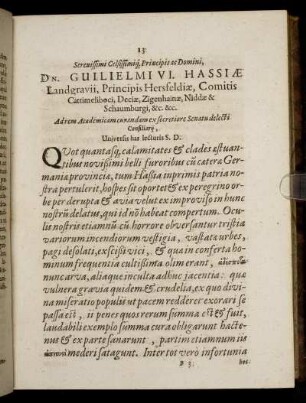 13
Serenissimi Celsissimiq́; Principis ac Domini,
DN. GUILIELMI VI. HASSIÆ
Landgravii, Principis Hersfeldiæ, Comitis
Cattimeliboci, Deciæ, Zigenhainæ, Niddæ &
Schaumburgi, &c. &c.
Ad rem Academicam curandam ex secretiore Senatu delecti
Consiliarij,
Universis has lecturis S. D.
QVot quantasq́; calamitates & clades æstuan-
tibus novissimi belli furoribus cũ cætera Ger-
mania provincia, tum Hassia inprimis patria no-
stra pertulerit, hospes sit oportet & ex peregrino or-
be per derupta & avia velut ex improviso in hunc
nostrũ delatus, qui id nõ habeat compertum. Ocu-
lis nostris etiamnũ cũ horrore obversantur tristia
variorum incendiorum vestigia, vastatæ urbes,
pagi desolati, exscisi vici, & quæ in conferta ho-
minum frequentia cultissima olim erant,
nunc arva, aliaque inculta adhuc jacentia: quæ
vulnera gravia quidem & crudelia, ex quo divi-
na miseratio populis ut pacem redderet exorari se
passa est, ii penes quos rerum summa est & fuit,
laudabili exemplo summa cura obligarunt hacte-
nus & ex parte sanarunt, partim etiamnum
mederi satagunt. Inter tot verò infortunia
B 3 hoc